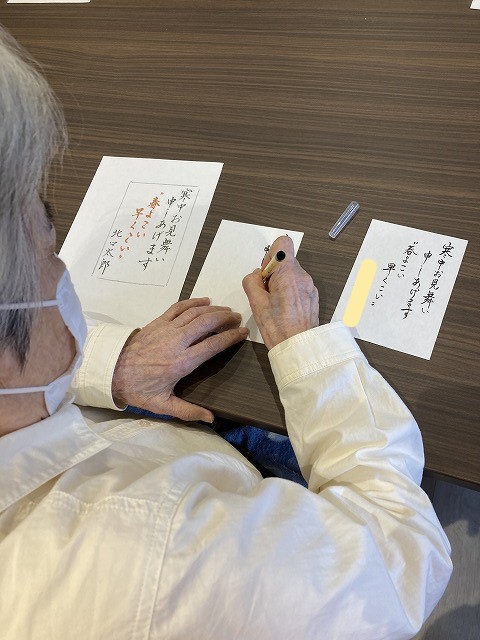 寒中お見舞い
申しあげます
"春よこい
早くこい"
北口太郎
寒中お見舞い
申しあげます
"春よこい
早くこい"